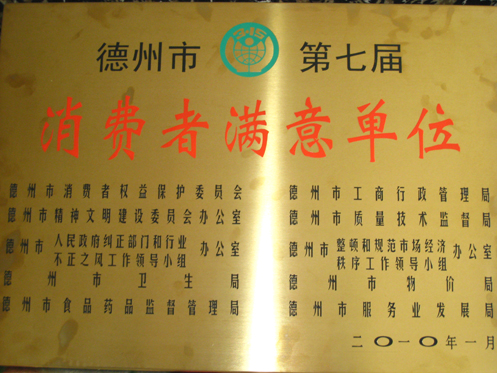 德州市 第七届
消费者满意单位
德州市消费者权益保护委员会
德州市精神文明建设委员会办公室
德州市人民政府纠正部门和行业不正之风工作领导小组办公室
德州市卫生局
德州市食品药品监督管理局
德州市工商行政管理局
德州市质量技术监督局
德州市整顿和规范市场经济秩序工作领导小组办公室
德州市物价局
德州市服务业发展局
二〇一〇年一月